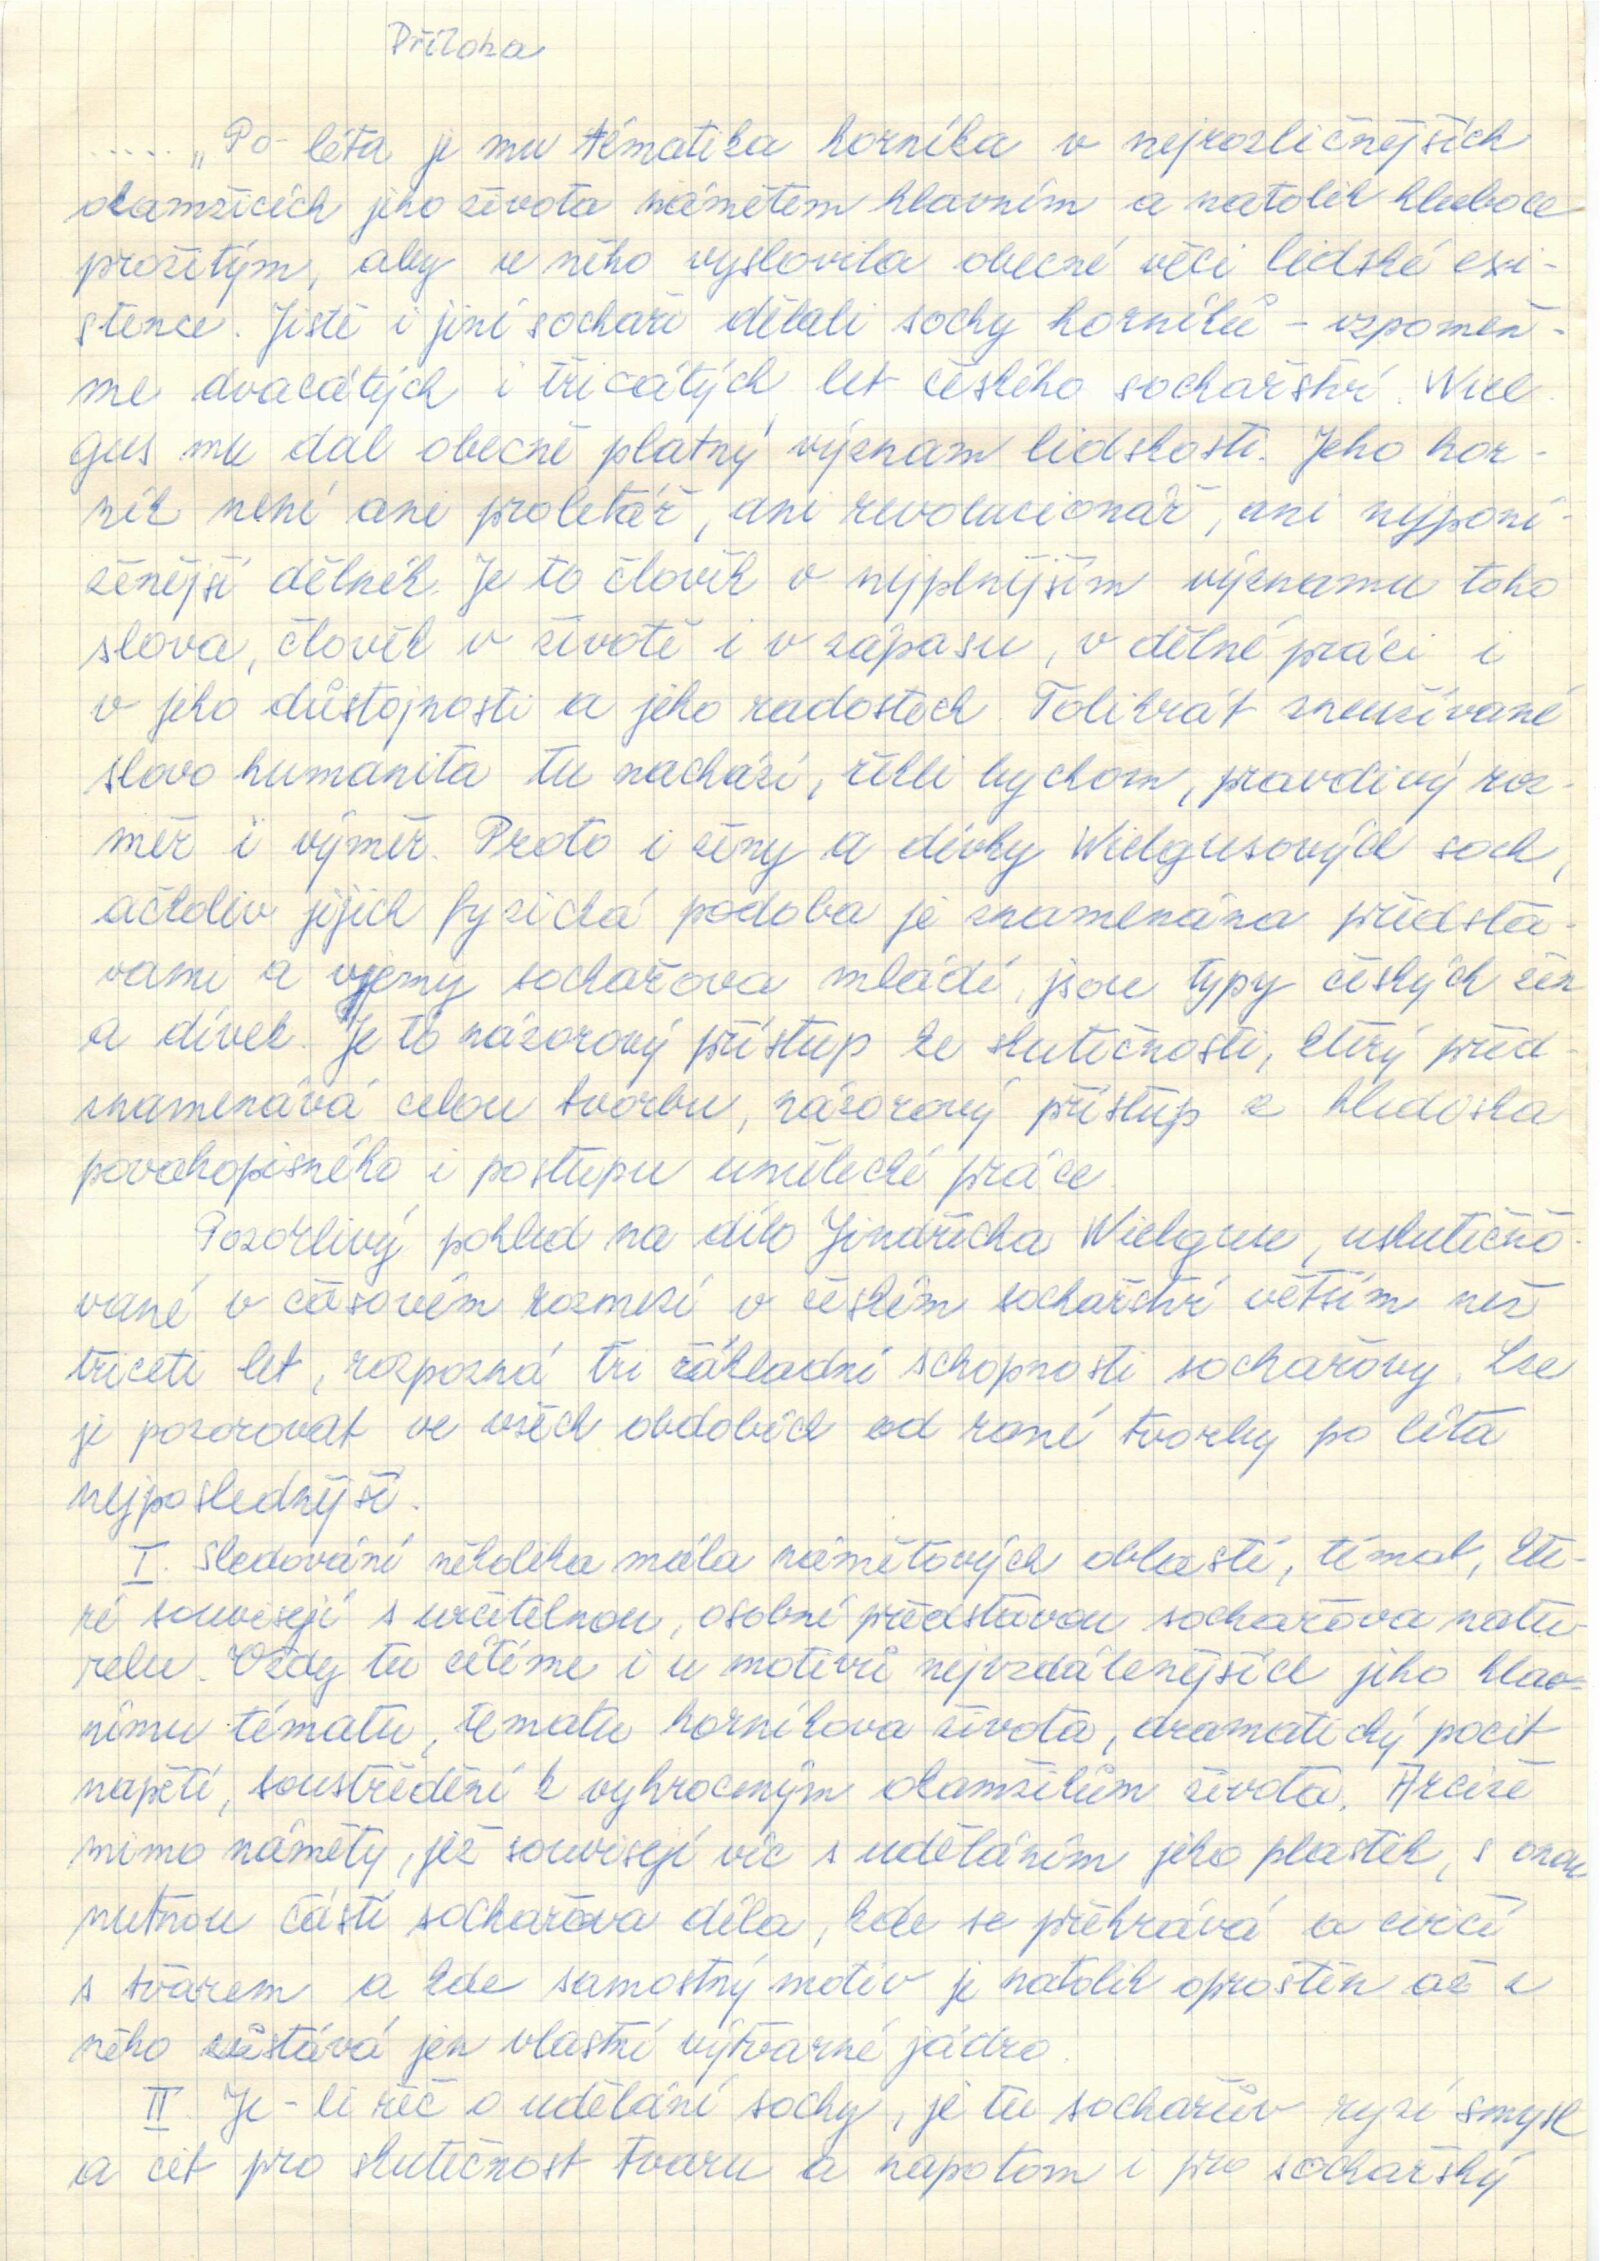 Příloha
..... „Po léta je mu tématika horníka v nejrozličnějších
okamžicích jeho života námětem hlavním a natolik hluboce
prožitým, aby v něho vyslovila obecné věci lidské exi-
stence. Jistě i jiní sochaři dělali sochy horníků – vzpomeň-
me dvacátých i třicátých let českého sochařství. Wiel-
gus mu dal obecně platný význam lidskosti. Jeho hor-
ník není ani proletář, ani revolucionář, ani nejponí-
ženější dělník. Je to člověk v nejplnějším významu toho
slova, člověk v životě i v zápasu, v dělné práci i
v jeho důstojnosti a jeho radostech. Tolikrát zneužívané
slovo humanita tu nachází, řekli bychom, pravdivý roz-
měr i výměr. Proto i ženy a dívky Wielgusových soch,
ačkoliv jejich fyzická podoba je znamenána předsta-
vami a vjemy sochařova mládí, jsou typy českých žen
a dívek. Je to názorový přístup ke skutečnosti, který před-
znamenává celou tvorbu, názorový přístup z hlediska
povahopisného i postupu umělecké práce.
Pozorlivý pohled na dílo Jindřicha Wielguse, uskutečňo-
vané v časovém rozmezí v českém sochařství větším než
třiceti let, rozpozná tři základní schopnosti sochařovy. Lze
je pozorovat ve všech obdobích od rané tvorby po léta
nejposlednější.
I. Sledování několika mála námětových oblastí, témat, kte-
ré souvisejí s určitelnou, osobní představou sochařova natu-
relu. Vždy tu cítíme i u motivů nejvzdálenějších jeho hlav-
nímu tématu, tematu horníkova života, dramatický pocit
napětí, soustředění k vyhroceným okamžikům života. Arciže
mimo náměty, jež souvisejí víc s uděláním jeho plastik, s onou
nutnou částí sochařova díla, kde se přehrává a cvičí
s tvarem a kde samostný motiv je natolik oproštěn až z
něho zůstává jen vlastní výtvarné jádro.
II. Je-li řeč o udělání sochy, je tu sochařův ryzí smysl
a cit pro skutečnost tvaru a napotom i pro sochařský